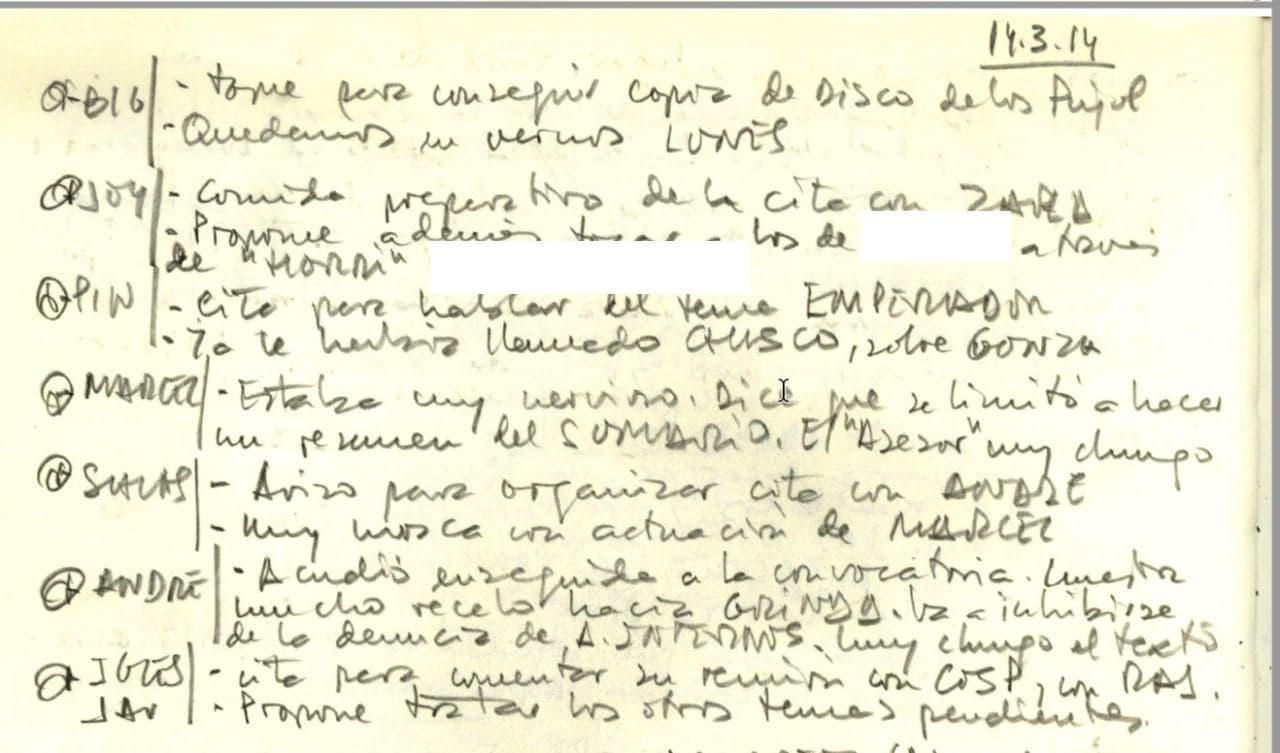 14.3.14
BIG - Toque para conseguir copia de DISCO de los Pujol
- Quedamos en vernos LUNES
JOY - Comida preparativo de la cita con
- Propone además a los de a través
de "HORRI"
PIN - Cita para hablar del tema EMPERADOR
- Ya le habían llamado CHISCO, sobre GONZA
MARCEL - Estaba muy nervioso. Dice que se limitó a hacer
un resumen del SUMARIO. El "Asesor" muy chungo
SALAS - Aviso para organizar cita con ANDRE
- Muy mosca con actuación de MARCEL
ANDRE - Acudió enseguida a la convocatoria. Muestra
mucho recelo hacia GRINDA. Va a inhibirse
de la denuncia de A. INTERNOS. Muy chungo el texto
- Cita para comentar su reunión con COSP, con RAJ.
JAV - Propone tratar los otros temas pendientes.